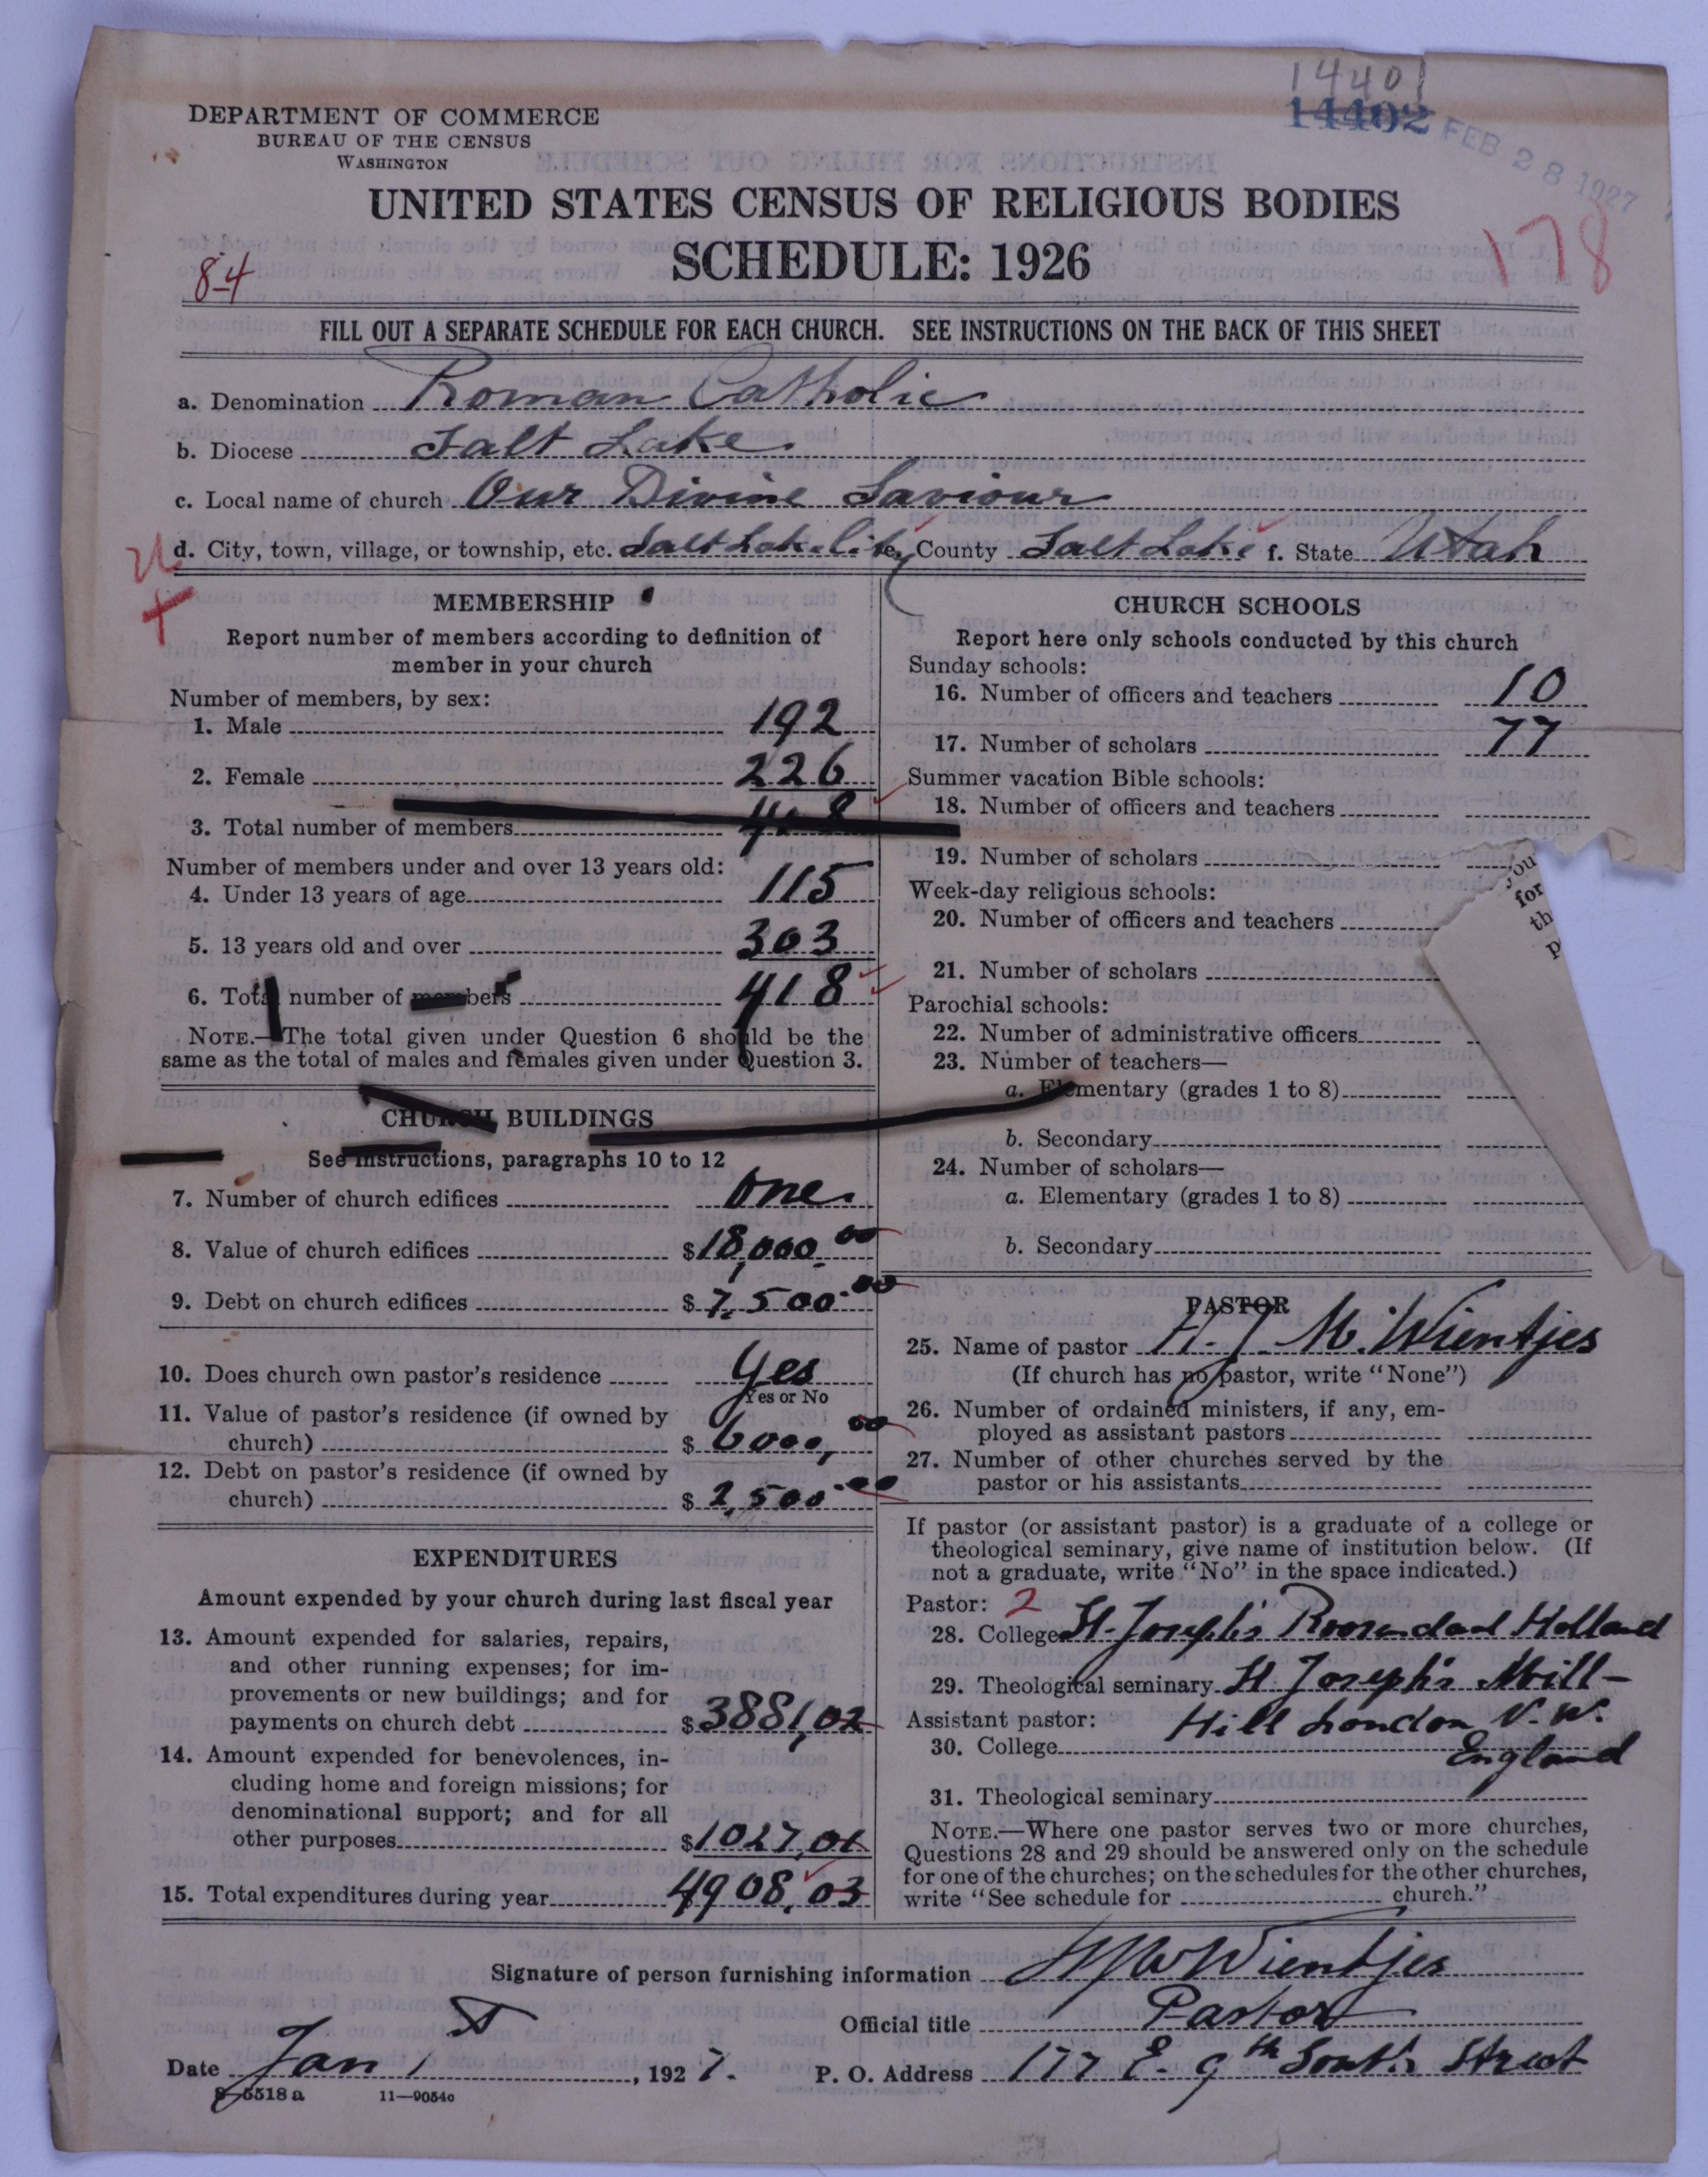 14401
14402 FEB 28 1927
DEPARTMENT OF COMMERCE
BUREAU OF THE CENSUS
WASHINGTON
UNITED STATES CENSUS OF RELIGIOUS BODIES
SCHEDULE: 1926
178
8-4
FILL OUT A SEPARATE SCHEDULE FOR EACH CHURCH. SEE INSTRUCTIONS ON THE BACK OF THIS SHEET
a. Denomination Roman Catholic
b. Diocese Salt Lake
c. Local name of church Our Divine Saviour
d. City, town, village, or township, etc. Salt Lake City e. County Salt Lake f. State Utah
MEMBERSHIP
Report number of members according to definition of
member in your church
Number of members, by sex:
1. Male 192
2. Female 226
3. Total number of members 418
Number of members under and over 13 years old:
4. Under 13 years of age 115
5. 13 years old and over 303
6. Total number of members 418
NOTE.—The total given under Question 6 should be the
same as the total of males and females given under Question 3.
CHURCH BUILDINGS
See instructions, paragraphs 10 to 12
7. Number of church edifices One
8. Value of church edifices $18,000.00
9. Debt on church edifices $7,500.00
10. Does church own pastor's residence Yes
Yes or No
11. Value of pastor's residence (if owned by
church) $6000,00
12. Debt on pastor's residence (if owned by
church) $2,500.00
EXPENDITURES
Amount expended by your church during last fiscal year
13. Amount expended for salaries, repairs,
and other running expenses; for im-
provements or new buildings; and for
payments on church debt $3881,02
14. Amount expended for benevolences, in-
cluding home and foreign missions; for
denominational support; and for all
other purposes $1027,01
15. Total expenditures during year 4908.03
CHURCH SCHOOLS
Report here only schools conducted by this church
Sunday schools:
16. Number of officers and teachers 10
17. Number of scholars 77
Summer vacation Bible schools:
18. Number of officers and teachers
19. Number of scholars
Week-day religious schools:
20. Number of officers and teachers
21. Number of scholars
Parochial schools:
22. Number of administrative officers
23. Number of teachers—
a. Elementary (grades 1 to 8)
b. Secondary
24. Number of scholars—
a. Elementary (grades 1 to 8)
b. Secondary
you
for
th
p
PASTOR
25. Name of pastor H. J. M. Wientjes
(If church has no pastor, write "None")
26. Number of ordained ministers, if any, em-
ployed as assistant pastors
27. Number of other churches served by the
pastor or his assistants
If pastor (or assistant pastor) is a graduate of a college or
theological seminary, give name of institution below. (If
not a graduate, write "No" in the space indicated.)
Pastor: 2
28. College St. Joseph's Roosendaal Holland
29. Theological seminary St. Joseph's Mill-
Assistant pastor: Hill London N. W.
30. College England
31. Theological seminary
NOTE.—Where one pastor serves two or more churches,
Questions 28 and 29 should be answered only on the schedule
for one of the churches; on the schedules for the other churches,
write "See schedule for church."
Signature of person furnishing information HJM Wientjes
Official title Pastor
Date Jan 1, 1927. P. O. Address 177 E. 9th South Street
8-5518 a 11—9054c